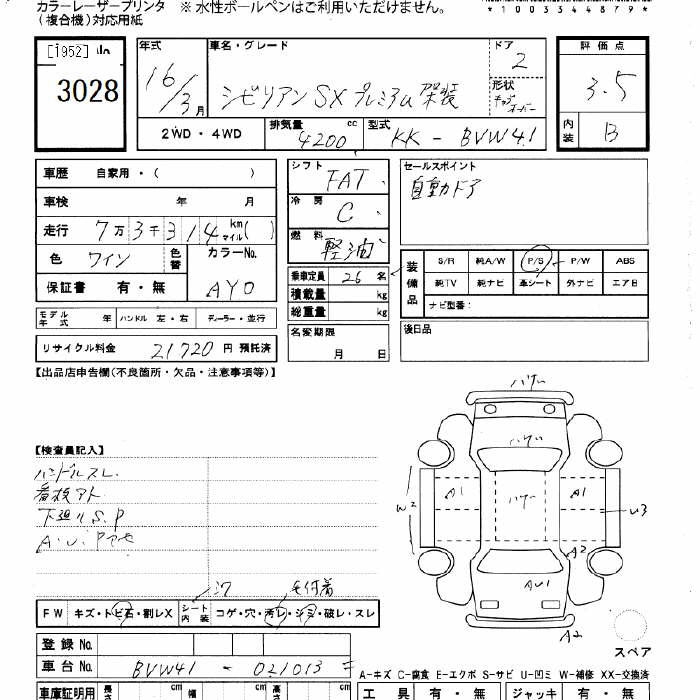 カラーレーザープリンタ ※ 水性ボールペンはご利用いただけません。
(複合機)対応用紙
*1003344879*
[1952]
3028
年式 16/3月
車名・グレード シビリアン SX プレミアム 架装
ドア 2
形状 キャブオーバー
評価点 3.5
内装 B
2WD・4WD
排気量 4200 cc
型式 KK - BVW41
車歴 自家用・( )
車検 年 月
走行 7万3千314 km マイル( )
色 ワイン 色替
カラーNo. AY0
保証書 有・無
シフト FAT
冷房 C
燃料 軽油
乗車定員 26 名
積載量 kg
総重量 kg
セールスポイント
自動ドア
装備品
S/R 純A/W P/S P/W ABS
純TV 純ナビ 革シート 外ナビ エアB
ナビ型番:
モデル年式 年 ハンドル 左・右 ディーラー・並行
名変期限 月 日
後日品
リサイクル料金 21720 円 預託済
【出品店申告欄(不良箇所・欠品・注意事項等)】
【検査員記入】
ハンドルスレ
看板アト
下廻りS.P
W2 A1 A1 U3
A2
AU1
A2
スペア
FW キズ・トビ石・割レX
シート内装 コゲ・穴・汚レ・シミ・破レ・スレ
登録 No.
車台 No. BVW41 - 021013
A-キズ C-腐食 E-エクボ S-サビ U-凹ミ W-補修 XX-交換済
車庫証明用 長さ cm 幅 cm 高さ cm
工具 有・無 ジャッキ 有・無